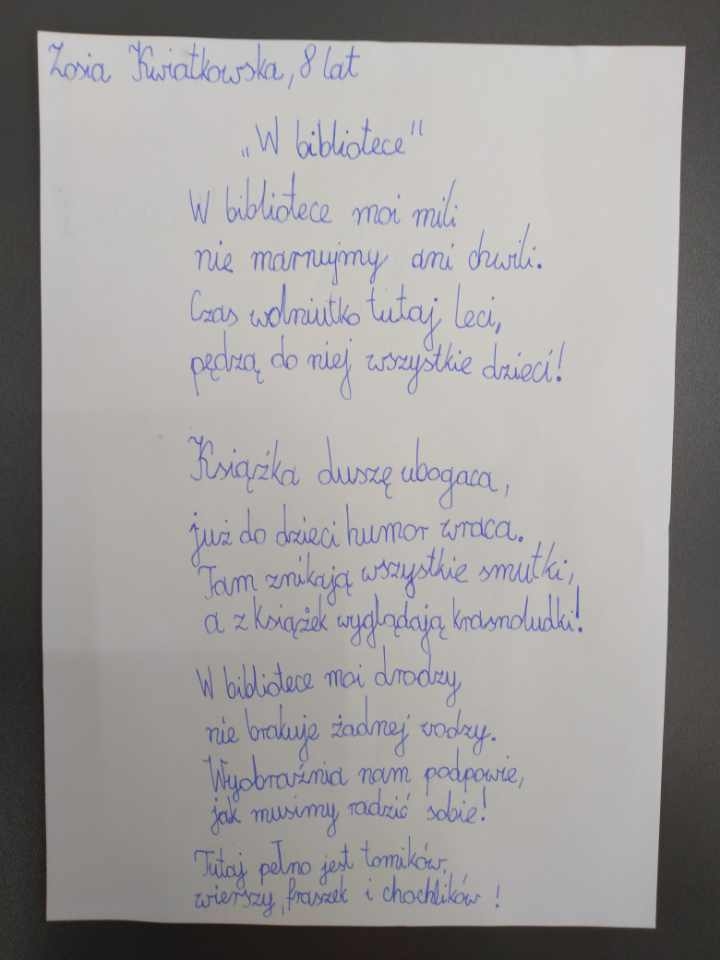 Zosia Kwiatkowska, 8 lat
„W bibliotece"
W bibliotece moi mili
nie marnujmy ani chwili.
Czas wolniutko tutaj leci,
pędzą do niej wszystkie dzieci!
Książka duszę ubogaca,
już do dzieci humor wraca.
Tam znikają wszystkie smutki,
a z książek wyglądają krasnoludki!
W bibliotece moi drodzy
nie brakuje żadnej wodzy.
Wyobraźnia nam podpowie,
jak musimy radzić sobie!
Tutaj pełno jest tomików,
wierszy, fraszek i chochlików!